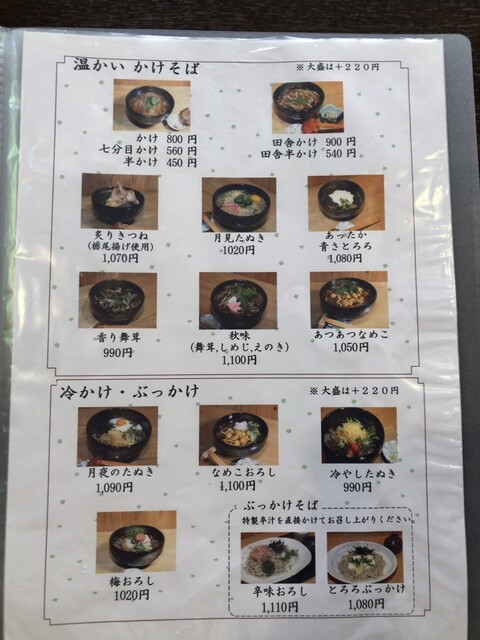 温かい かけそば
※大盛は＋２２０円
かけ 800 円
七分目かけ 560 円
半かけ 450 円
田舎かけ 900 円
田舎半かけ 540 円
炙りきつね
(栃尾揚げ使用)
1,070円
月見たぬき
1020円
あったか
青さとろろ
1,080円
香り舞茸
990円
秋味
(舞茸,しめじ,えのき)
1,100円
あつあつなめこ
1,050円
冷かけ・ぶっかけ
※大盛は＋２２０円
月夜のたぬき
1,090円
なめこおろし
1,100円
冷やしたぬき
990円
梅おろし
1020円
ぶっかけそば
特製辛汁を直接かけてお召し上がりください
辛味おろし
1,110円
とろろぶっかけ
1,080円